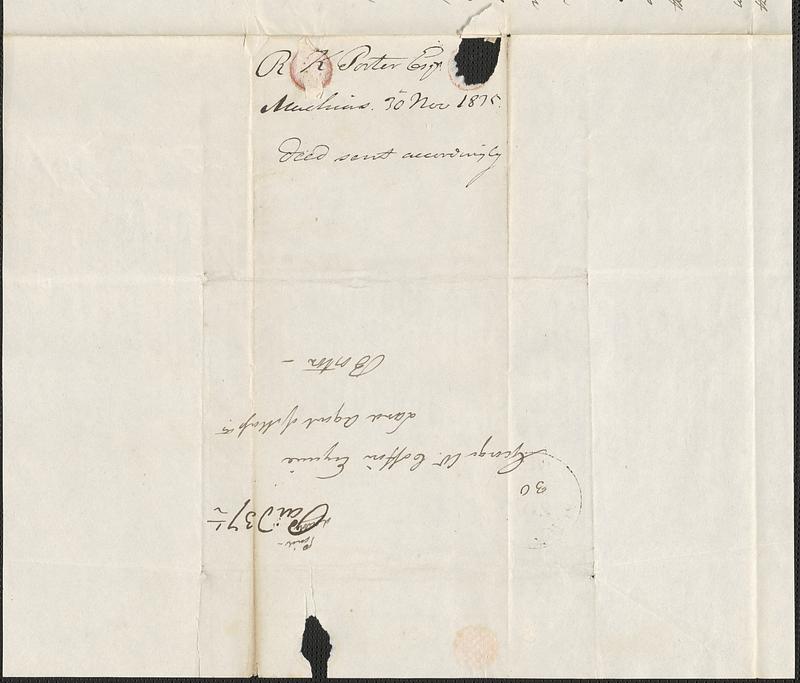 R K Porter Esqr
Machias. 30 Nov 1835.
Deed sent accordingly
Paid
Paid 37½
30
George W. Coffin Esquire
Land Agent of Masstts
Boston